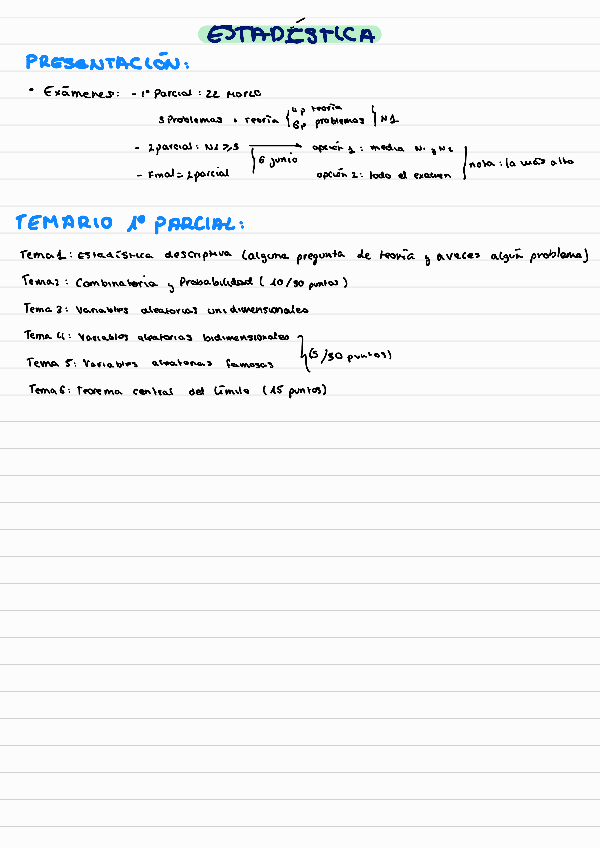 ESTADÍSTICA
PRESENTACIÓN:
• Exámenes: - 1º Parcial: 22 Marzo
3 Problemas + Teoría { 4p teoría
6p problemas } N1
- 2 parcial: N1 ≥ 3 → opción 1: media N1 y N2
6 junio
nota: la más alta
- Final = 2 parcial opción 2: todo el examen
TEMARIO 1º PARCIAL:
Tema 1: Estadística descriptiva (alguna pregunta de teoría y a veces algún problema)
Tema 2: Combinatoria y Probabilidad (10/30 puntos)
Tema 3: Variables aleatorias unidimensionales
Tema 4: Variables aleatorias bidimensionales
(5/30 puntos)
Tema 5: Variables aleatorias famosas
Tema 6: Teorema central del límite (15 puntos)